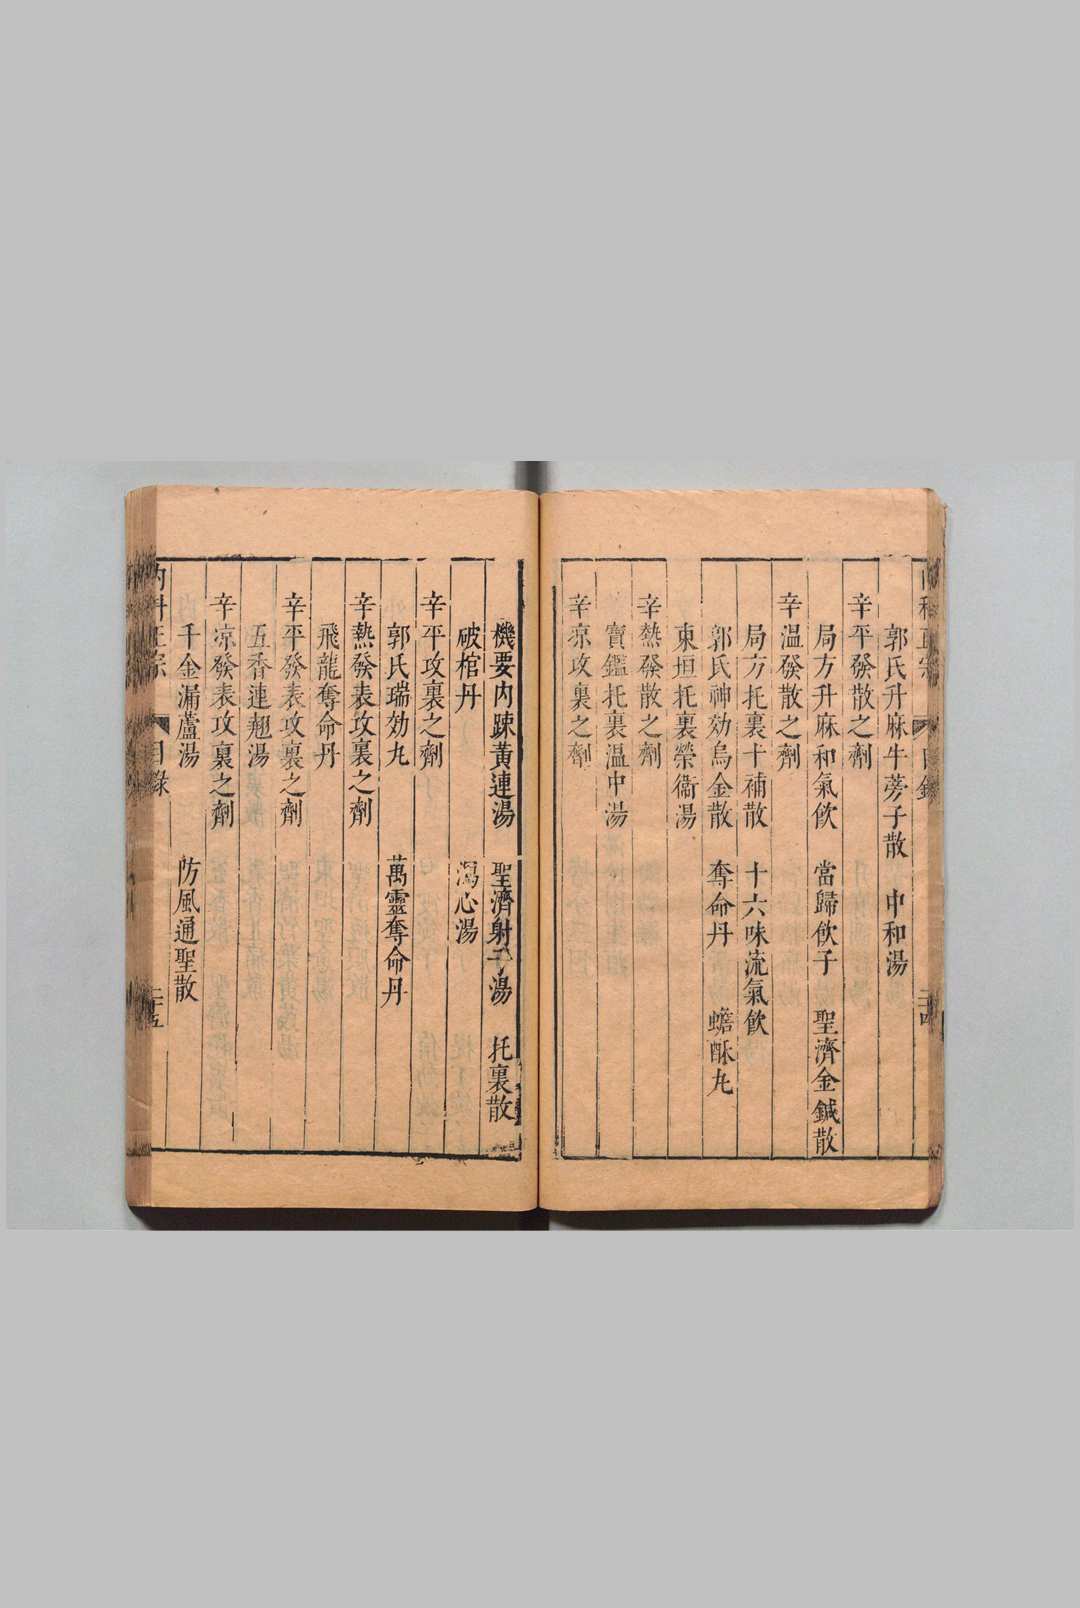 郭氏升麻牛蒡子散　中和湯
辛平發散之劑
局方升麻和氣飲　當歸飲子　聖濟金鍼散
辛温發散之劑
局方托裏十補散　十六味流氣飲
郭氏神効烏金散　奪命丹　蟾酥丸
東垣托裏榮衞湯
辛熱發散之劑
寶鑑托裏温中湯
辛凉攻裏之劑
機要内踈黄連湯　聖濟射干湯　托裏散
破棺丹　瀉心湯
辛平攻裏之劑
郭氏瑞効丸　萬靈奪命丹
辛熱發表攻裏之劑
飛龍奪命丹
辛平發表攻裏之劑
五香連翹湯
辛凉發表攻裏之劑
千金漏蘆湯　防風通聖散
内科正宗　目錄　二十五